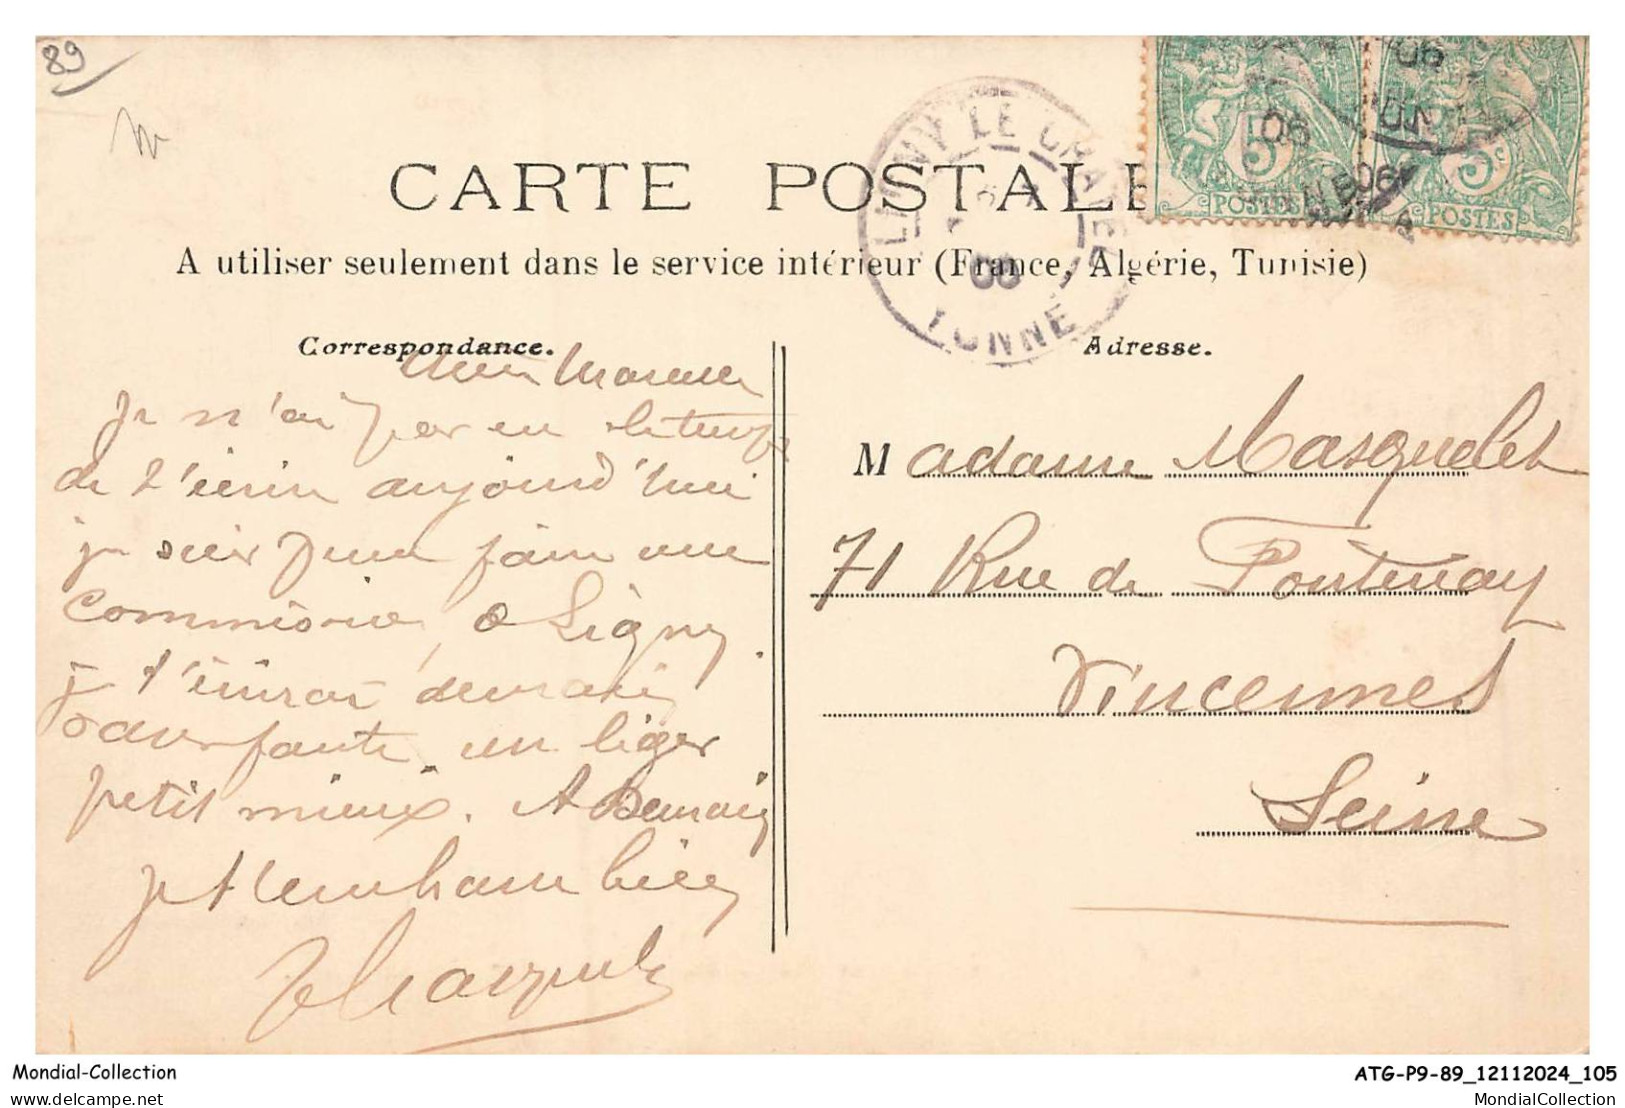 89
CARTE POSTALE
A utiliser seulement dans le service intérieur (France, Algérie, Tunisie)
LIGNY LE CHATEL
06
YONNE
5c POSTES
5c POSTES
06
06
06
Correspondance.
Adresse.
Chère Maman
Je n'ai pas eu le temps
de t'écrire aujourd'hui
je suis venu faire une
Commission à Ligny.
je t'écrirai demain
va un léger
petit mieux. A Demain
Je t'embrasse bien
Madame Masquelet
71 Rue de Fontenay
Vincennes
Seine
Mondial-Collection
delcampe.net
ATG-P9-89_12112024_105
MondialCollection